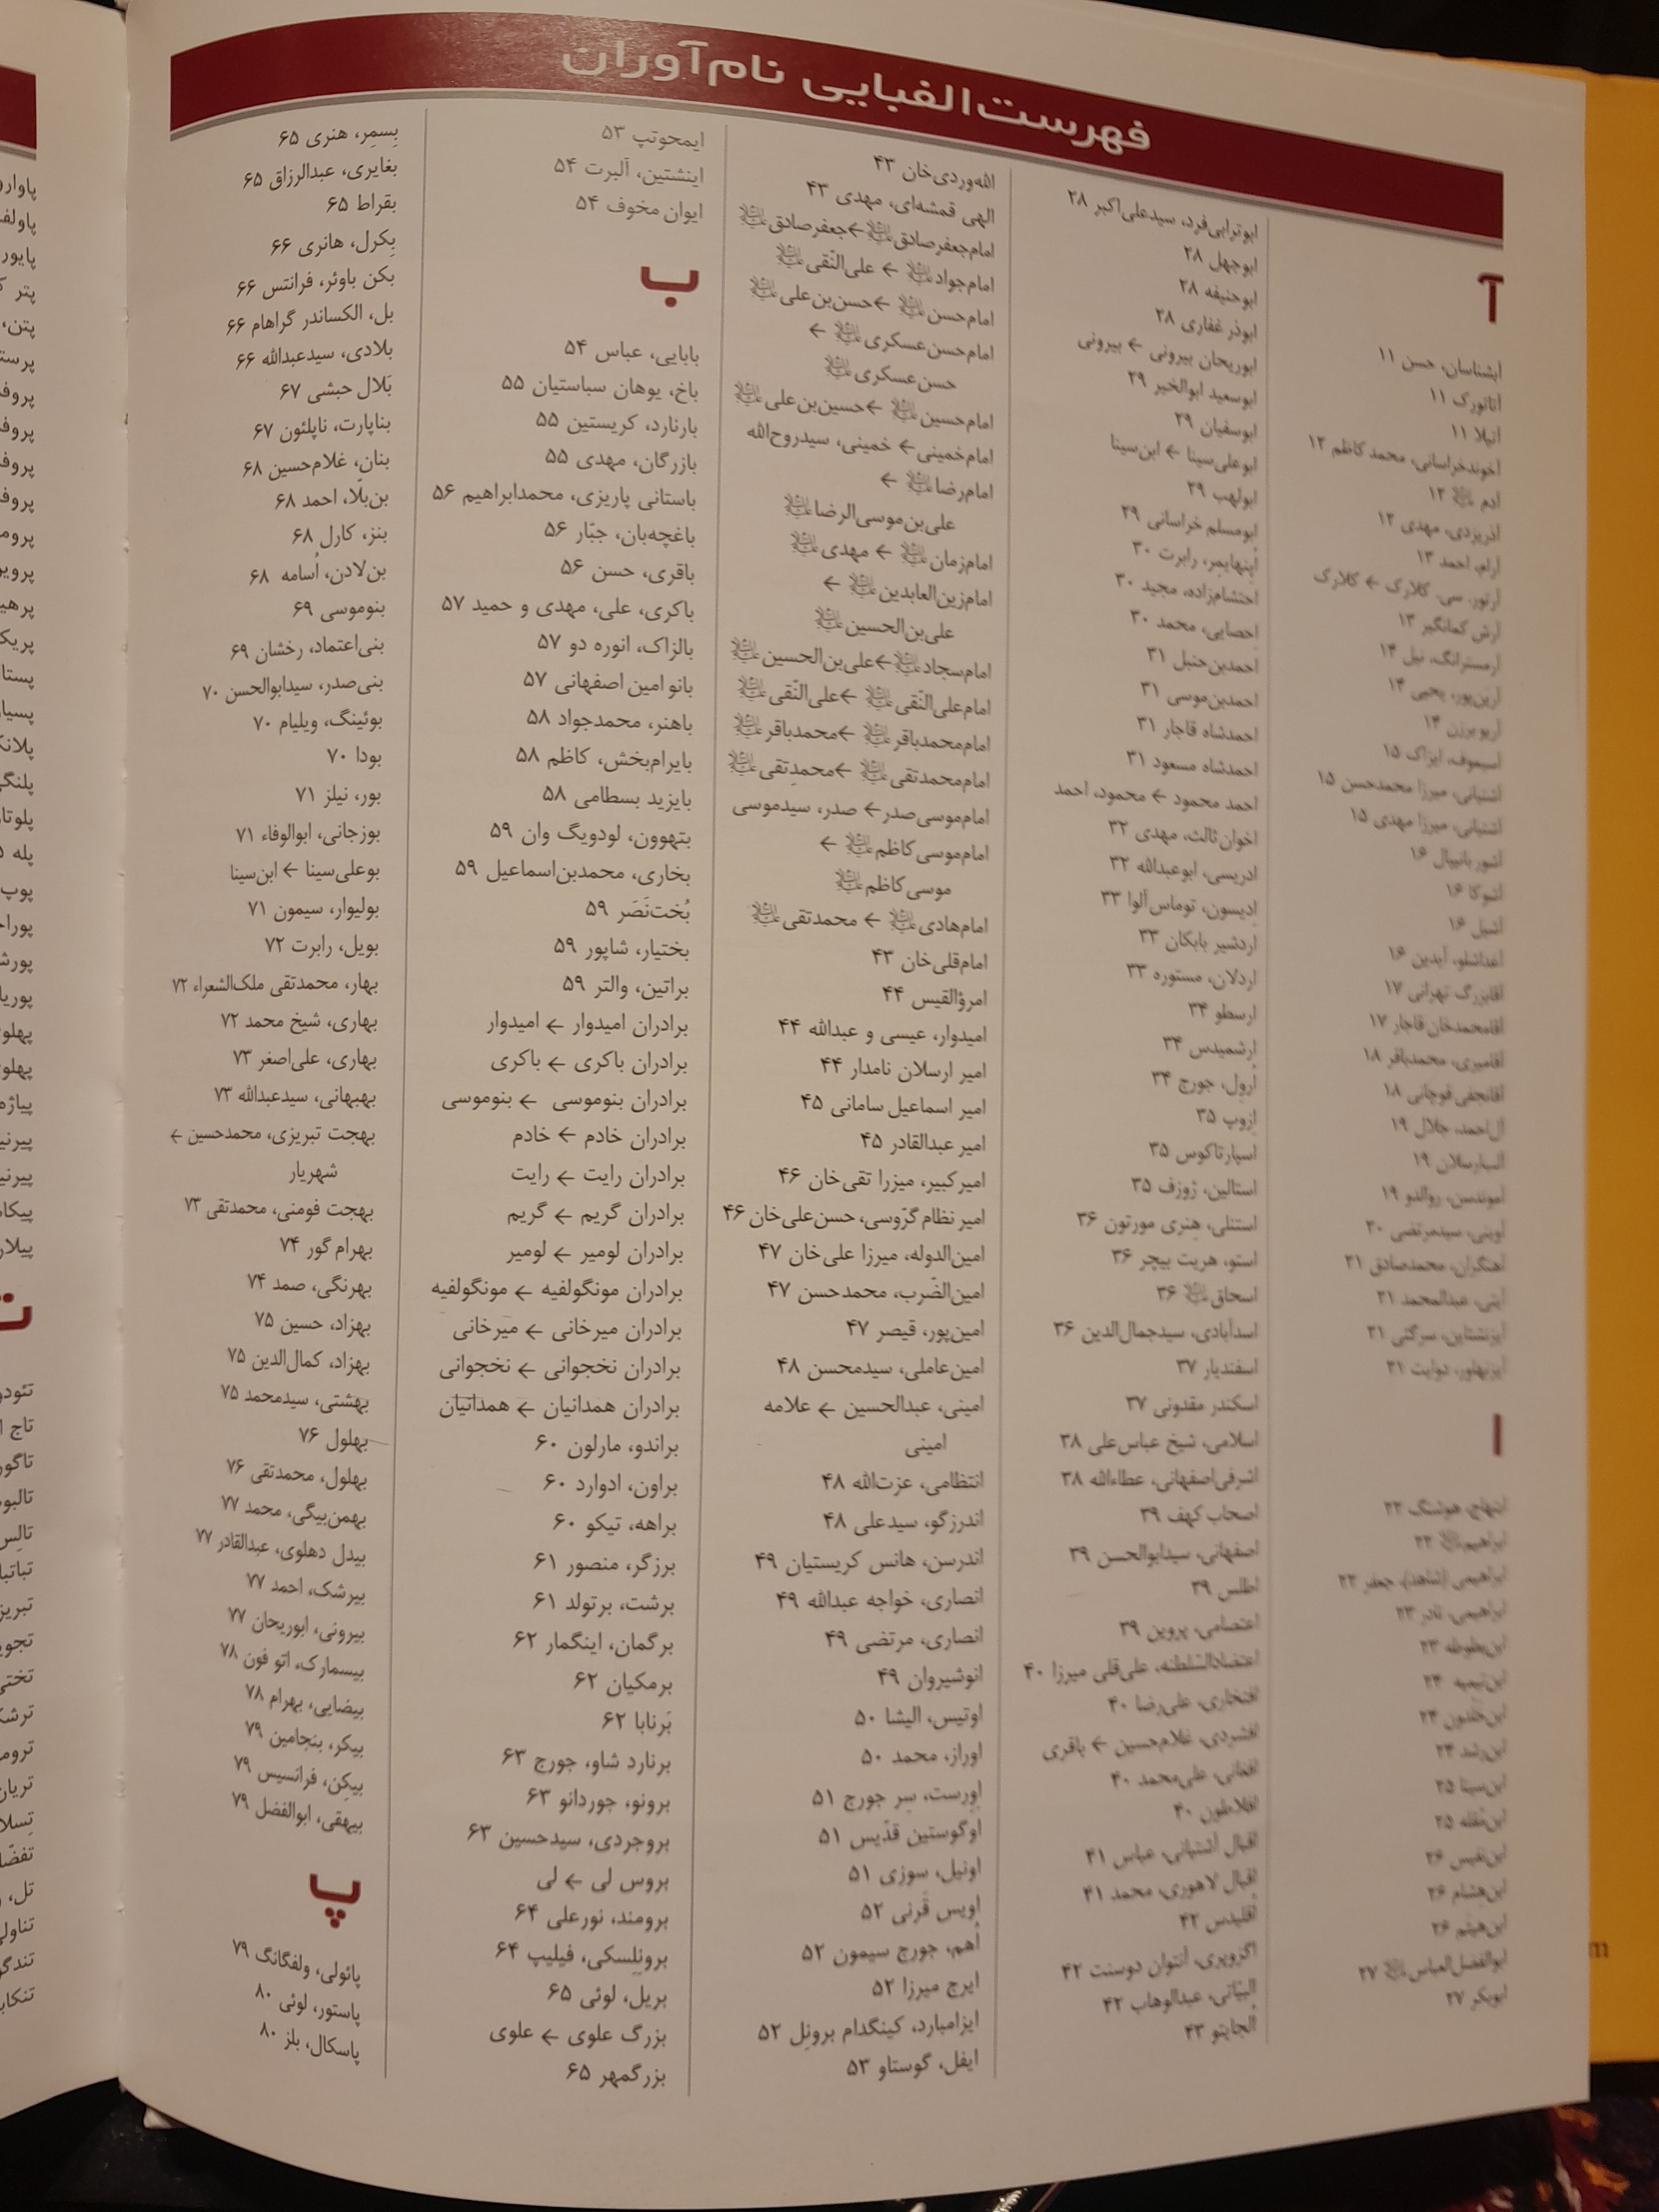 فهرست الفبایی نام‌آوران
آ
آبشناسان، حسن ۱۱
آتاتورک ۱۱
آتیلا ۱۱
آخوندخراسانی، محمد کاظم ۱۲
آدم ۱۲
آذریزدی، مهدی ۱۲
آرام، احمد ۱۳
آرتور. سی. کلارک ← کلارک
آرش کمانگیر ۱۳
آرمسترانگ، نیل ۱۴
آرین‌پور، یحیی ۱۴
آریو برزن ۱۴
آسیموف، ایزاک ۱۵
آشتیانی، میرزا محمدحسن ۱۵
آشتیانی، میرزا مهدی ۱۵
آشور بانیپال ۱۶
آشوکا ۱۶
آشیل ۱۶
آغداشلو، آیدین ۱۶
آقابزرگ تهرانی ۱۷
آقامحمدخان قاجار ۱۷
آقامیری، محمدباقر ۱۸
آقانجفی قوچانی ۱۸
آل‌احمد، جلال ۱۹
آلب‌ارسلان ۱۹
آموندسن، روالدو ۱۹
آوینی، سیدمرتضی ۲۰
آهنگران، محمدصادق ۲۱
آیتی، عبدالمحمد ۲۱
آیزنشتاین، سرگئی ۲۱
آیزنهاور، دوایت ۲۱
ا
ابتهاج، هوشنگ ۲۲
ابراهیم ۲۲
ابراهیمی (شاهد)، جعفر ۲۳
ابراهیمی، نادر ۲۳
ابن‌بطوطه ۲۳
ابن‌تیمیه ۲۴
ابن‌خلدون ۲۴
ابن‌رشد ۲۴
ابن‌سینا ۲۵
ابن‌مقله ۲۵
ابن‌نفیس ۲۶
ابن‌هشام ۲۶
ابن‌هیثم ۲۶
ابوالفضل‌العباس ۲۷
ابوبکر ۲۷
ابوترابی‌فرد، سیدعلی‌اکبر ۲۸
ابوجهل ۲۸
ابوحنیفه ۲۸
ابوذر غفاری ۲۸
ابوریحان بیرونی ← بیرونی
ابوسعید ابوالخیر ۲۹
ابوسفیان ۲۹
ابوعلی‌سینا ← ابن‌سینا
ابولهب ۲۹
ابومسلم خراسانی ۲۹
اُپنهایمر، رابرت ۳۰
احتشام‌زاده، مجید ۳۰
احصایی، محمد ۳۰
احمدبن‌حنبل ۳۱
احمدبن‌موسی ۳۱
احمدشاه قاجار ۳۱
احمدشاه مسعود ۳۱
احمد محمود ← محمود، احمد
اخوان‌ثالث، مهدی ۳۲
ادریسی، ابوعبدالله ۳۲
ادیسون، توماس آلوا ۳۳
اردشیر بابکان ۳۳
اردلان، مستوره ۳۳
ارسطو ۳۴
ارشمیدس ۳۴
اُرول، جورج ۳۴
ازوپ ۳۵
اسپارتاکوس ۳۵
استالین، ژوزف ۳۵
استنلی، هنری مورتون ۳۶
استو، هریت بیچر ۳۶
اسحاق ۳۶
اسدآبادی، سیدجمال‌الدین ۳۶
اسفندیار ۳۷
اسکندر مقدونی ۳۷
اسلامی، شیخ عباس‌علی ۳۸
اشرفی‌اصفهانی، عطاءالله ۳۸
اصحاب کهف ۳۹
اصفهانی، سیدابوالحسن ۳۹
اطلس ۳۹
اعتصامی، پروین ۳۹
اعتضادالسّلطنه، علی‌قلی میرزا ۴۰
افتخاری، علی‌رضا ۴۰
افشردی، غلام‌حسین ← باقری
افغانی، علی‌محمد ۴۰
افلاطون ۴۰
اقبال آشتیانی، عباس ۴۱
اقبال لاهوری، محمد ۴۱
اُقلیدس ۴۲
اگزوپری، آنتوان دوسنت ۴۲
البیّاتی، عبدالوهاب ۴۲
اُلجایتو ۴۳
الله‌وردی‌خان ۴۳
الهی قمشه‌ای، مهدی ۴۳
امام‌جعفرصادق ← جعفرصادق
امام‌جواد ← علی‌النّقی
امام‌حسن ← حسن‌بن‌علی
امام‌حسن‌عسکری ←
حسن‌عسکری
امام‌حسین ← حسین‌بن‌علی
امام‌خمینی ← خمینی، سیدروح‌الله
امام‌رضا ←
علی‌بن‌موسی‌الرضا
امام‌زمان ← مهدی
امام‌زین‌العابدین ←
علی‌بن‌الحسین
امام‌سجاد ← علی‌بن‌الحسین
امام‌علی‌النّقی ← علی‌النّقی
امام‌محمدباقر ← محمدباقر
امام‌محمدتقی ← محمدتقی
امام‌موسی‌صدر ← صدر، سیدموسی
امام‌موسی‌کاظم ←
موسی‌کاظم
امام‌هادی ← محمدتقی
امام‌قلی‌خان ۴۳
امرؤالقیس ۴۴
امیدوار، عیسی و عبدالله ۴۴
امیر ارسلان نامدار ۴۴
امیر اسماعیل سامانی ۴۵
امیر عبدالقادر ۴۵
امیرکبیر، میرزا تقی‌خان ۴۶
امیر نظام گرّوسی، حسن‌علی‌خان ۴۶
امین‌الدوله، میرزا علی‌خان ۴۷
امین‌الضّرب، محمدحسن ۴۷
امین‌پور، قیصر ۴۷
امین‌عاملی، سیدمحسن ۴۸
امینی، عبدالحسین ← علامه
امینی
انتظامی، عزت‌الله ۴۸
اندرزگو، سیدعلی ۴۸
اندرسن، هانس کریستیان ۴۹
انصاری، خواجه عبدالله ۴۹
انصاری، مرتضی ۴۹
انوشیروان ۴۹
اوتیس، الیشا ۵۰
اوراز، محمد ۵۰
اورست، سِر جورج ۵۱
اوگوستین قدّیس ۵۱
اونیل، سوزی ۵۱
اویس قَرنی ۵۲
اُهم، جورج سیمون ۵۲
ایرج میرزا ۵۲
ایزامبارد، کینگدام برونِل ۵۲
ایفل، گوستاو ۵۳
ایمحوتپ ۵۳
اینشتین، آلبرت ۵۴
ایوان مخوف ۵۴
ب
بابایی، عباس ۵۴
باخ، یوهان سباستیان ۵۵
بارنارد، کریستین ۵۵
بازرگان، مهدی ۵۵
باستانی پاریزی، محمدابراهیم ۵۶
باغچه‌بان، جبّار ۵۶
باقری، حسن ۵۶
باکری، علی، مهدی و حمید ۵۷
بالزاک، انوره دو ۵۷
بانو امین اصفهانی ۵۷
باهنر، محمدجواد ۵۸
بایرام‌بخش، کاظم ۵۸
بایزید بسطامی ۵۸
بتهوون، لودویگ وان ۵۹
بخاری، محمدبن‌اسماعیل ۵۹
بُخت‌نَصَر ۵۹
بختیار، شاپور ۵۹
براتین، والتر ۵۹
برادران امیدوار ← امیدوار
برادران باکری ← باکری
برادران بنوموسی ← بنوموسی
برادران خادم ← خادم
برادران رایت ← رایت
برادران گریم ← گریم
برادران لومیر ← لومیر
برادران مونگولفیه ← مونگولفیه
برادران میرخانی ← میرخانی
برادران نخجوانی ← نخجوانی
برادران همدانیان ← همدانیان
براندو، مارلون ۶۰
براون، ادوارد ۶۰
براهه، تیکو ۶۰
برزگر، منصور ۶۱
برشت، برتولد ۶۱
برگمان، اینگمار ۶۲
برمکیان ۶۲
بَرنابا ۶۲
برنارد شاو، جورج ۶۳
برونو، جوردانو ۶۳
بروجردی، سیدحسین ۶۳
بروس لی ← لی
برومند، نورعلی ۶۴
برونلسکی، فیلیپ ۶۴
بریل، لوئی ۶۵
بزرگ علوی ← علوی
بزرگمهر ۶۵
بِسمِر، هنری ۶۵
بغایری، عبدالرزاق ۶۵
بقراط ۶۵
بِکرل، هانری ۶۶
بکن باوئر، فرانتس ۶۶
بل، الکساندر گراهام ۶۶
بلادی، سیدعبدالله ۶۶
بَلال حبشی ۶۷
بناپارت، ناپلئون ۶۷
بنان، غلام‌حسین ۶۸
بن‌بلّا، احمد ۶۸
بنز، کارل ۶۸
بن‌لادن، اُسامه ۶۸
بنوموسی ۶۹
بنی‌اعتماد، رخشان ۶۹
بنی‌صدر، سیدابوالحسن ۷۰
بوئینگ، ویلیام ۷۰
بودا ۷۰
بور، نیلز ۷۱
بوزجانی، ابوالوفاء ۷۱
بوعلی‌سینا ← ابن‌سینا
بولیوار، سیمون ۷۱
بویل، رابرت ۷۲
بهار، محمدتقی ملک‌الشعراء ۷۲
بهاری، شیخ محمد ۷۲
بهاری، علی‌اصغر ۷۳
بهبهانی، سیدعبدالله ۷۳
بهجت تبریزی، محمدحسین ←
شهریار
بهجت فومنی، محمدتقی ۷۳
بهرام گور ۷۴
بهرنگی، صمد ۷۴
بهزاد، حسین ۷۵
بهزاد، کمال‌الدین ۷۵
بهشتی، سیدمحمد ۷۵
بهلول ۷۶
بهلول، محمدتقی ۷۶
بهمن‌بیگی، محمد ۷۷
بیدل دهلوی، عبدالقادر ۷۷
بیرشک، احمد ۷۷
بیرونی، ابوریحان ۷۷
بیسمارک، اتو فون ۷۸
بیضایی، بهرام ۷۸
بیکر، بنجامین ۷۹
بیکن، فرانسیس ۷۹
بیهقی، ابوالفضل ۷۹
پ
پائولی، ولفگانگ ۷۹
پاستور، لوئی ۸۰
پاسکال، بلز ۸۰